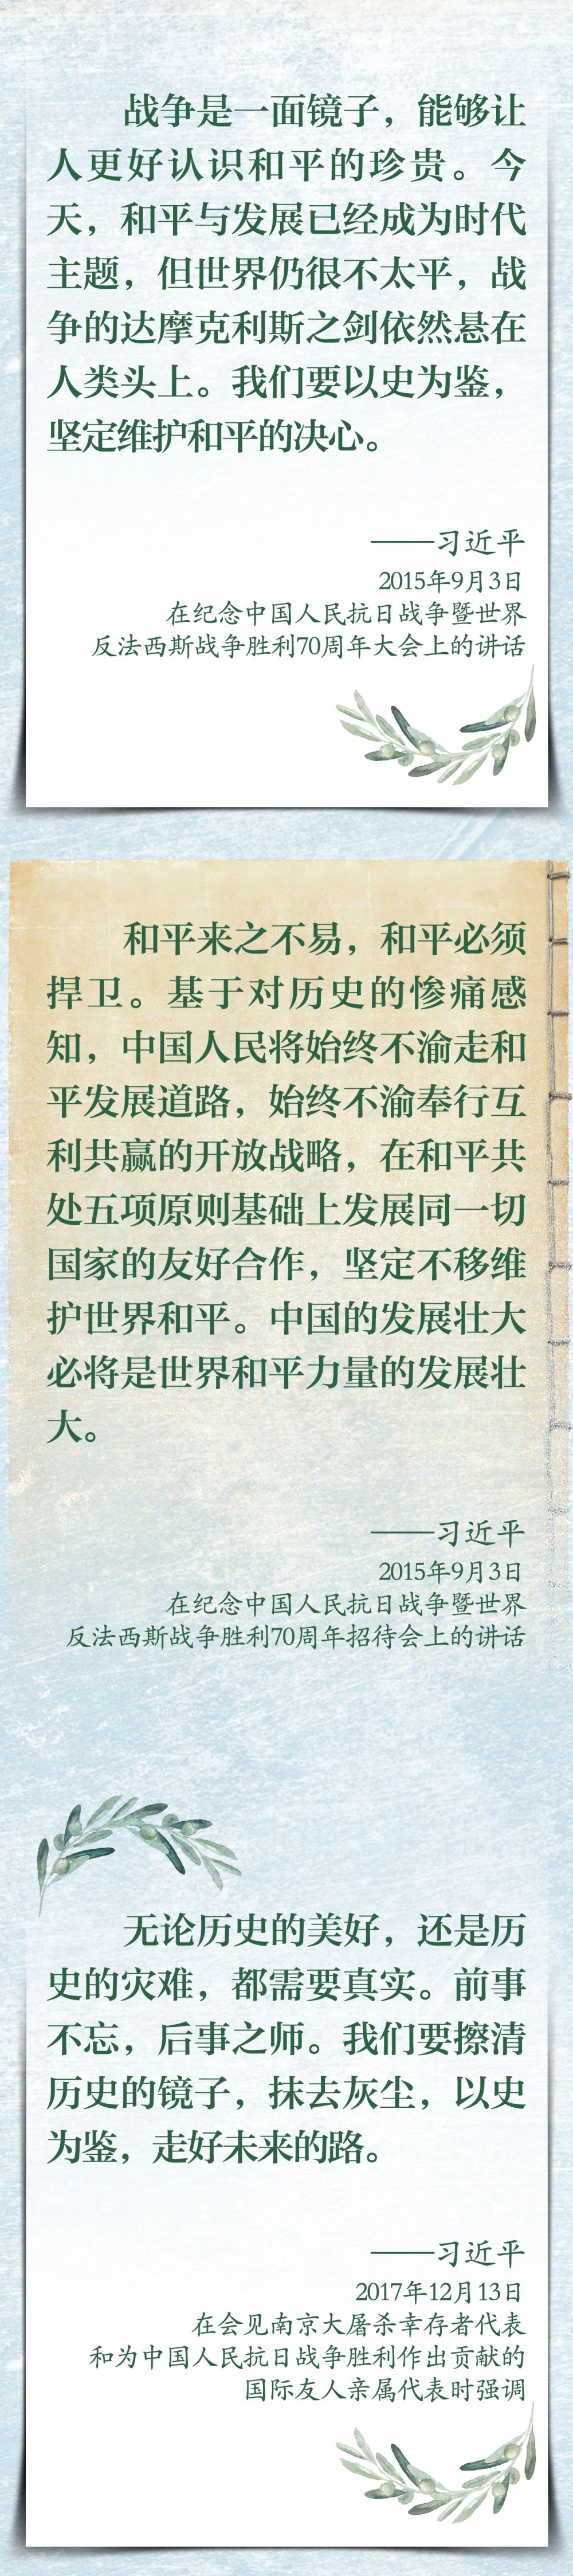 战争是一面镜子，能够让
人更好认识和平的珍贵。今
天，和平与发展已经成为时代
主题，但世界仍很不太平，战
争的达摩克利斯之剑依然悬在
人类头上。我们要以史为鉴，
坚定维护和平的决心。
——习近平
2015年9月3日
在纪念中国人民抗日战争暨世界
反法西斯战争胜利70周年大会上的讲话
和平来之不易，和平必须
捍卫。基于对历史的惨痛感
知，中国人民将始终不渝走和
平发展道路，始终不渝奉行互
利共赢的开放战略，在和平共
处五项原则基础上发展同一切
国家的友好合作，坚定不移维
护世界和平。中国的发展壮大
必将是世界和平力量的发展壮
大。
——习近平
2015年9月3日
在纪念中国人民抗日战争暨世界
反法西斯战争胜利70周年招待会上的讲话
无论历史的美好，还是历
史的灾难，都需要真实。前事
不忘，后事之师。我们要擦清
历史的镜子，抹去灰尘，以史
为鉴，走好未来的路。
——习近平
2017年12月13日
在会见南京大屠杀幸存者代表
和为中国人民抗日战争胜利作出贡献的
国际友人亲属代表时强调